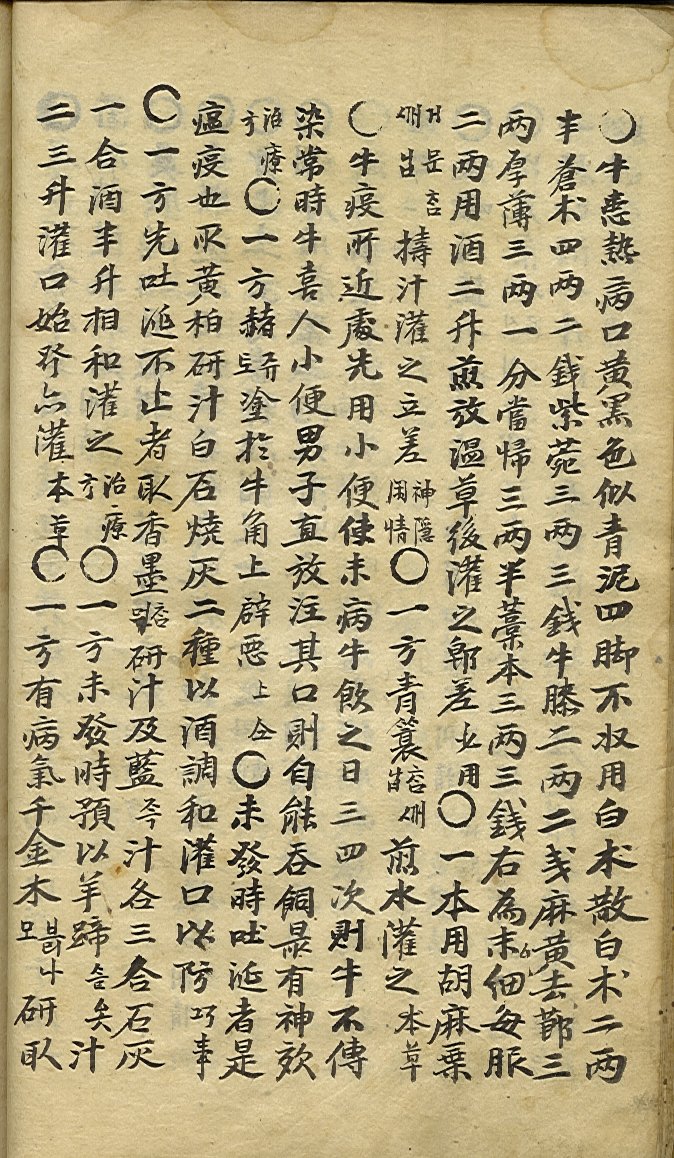 ○牛患熱病口黃黑色似青泥四脚不收用白朮散白朮二兩
半蒼朮四兩二錢紫菀三兩三錢牛膝二兩二戔麻黃去節三
兩厚薄三兩一分當帰三兩半藁本三兩三錢右為末細每服
二兩用酒二升煎放溫草後灌之郞差 止用○一本用胡麻葉
擣汁灌之立差 神隱 閑情○一方青蓑 煎水灌之 本草
○牛疫所近處先用小便使未病牛飮之日三四次則牛不傳
染常時牛喜人小便男子直放注其口則自能呑飼最有神效
治療方○一方赭 塗於牛角上辟惡 上仝○未發時吐涎者是
瘟疫也取黃柏硏汁白石燒灰二種以酒調和灌口以防 巧事
○一方先吐涎不止者取香墨 硏汁及藍 汁各三合石灰
一合酒半升相和灌之 治療方○一方未發時預以羊蹄 汁
二三升灌口始發亦灌 本草○一方有病氣千金木 硏取